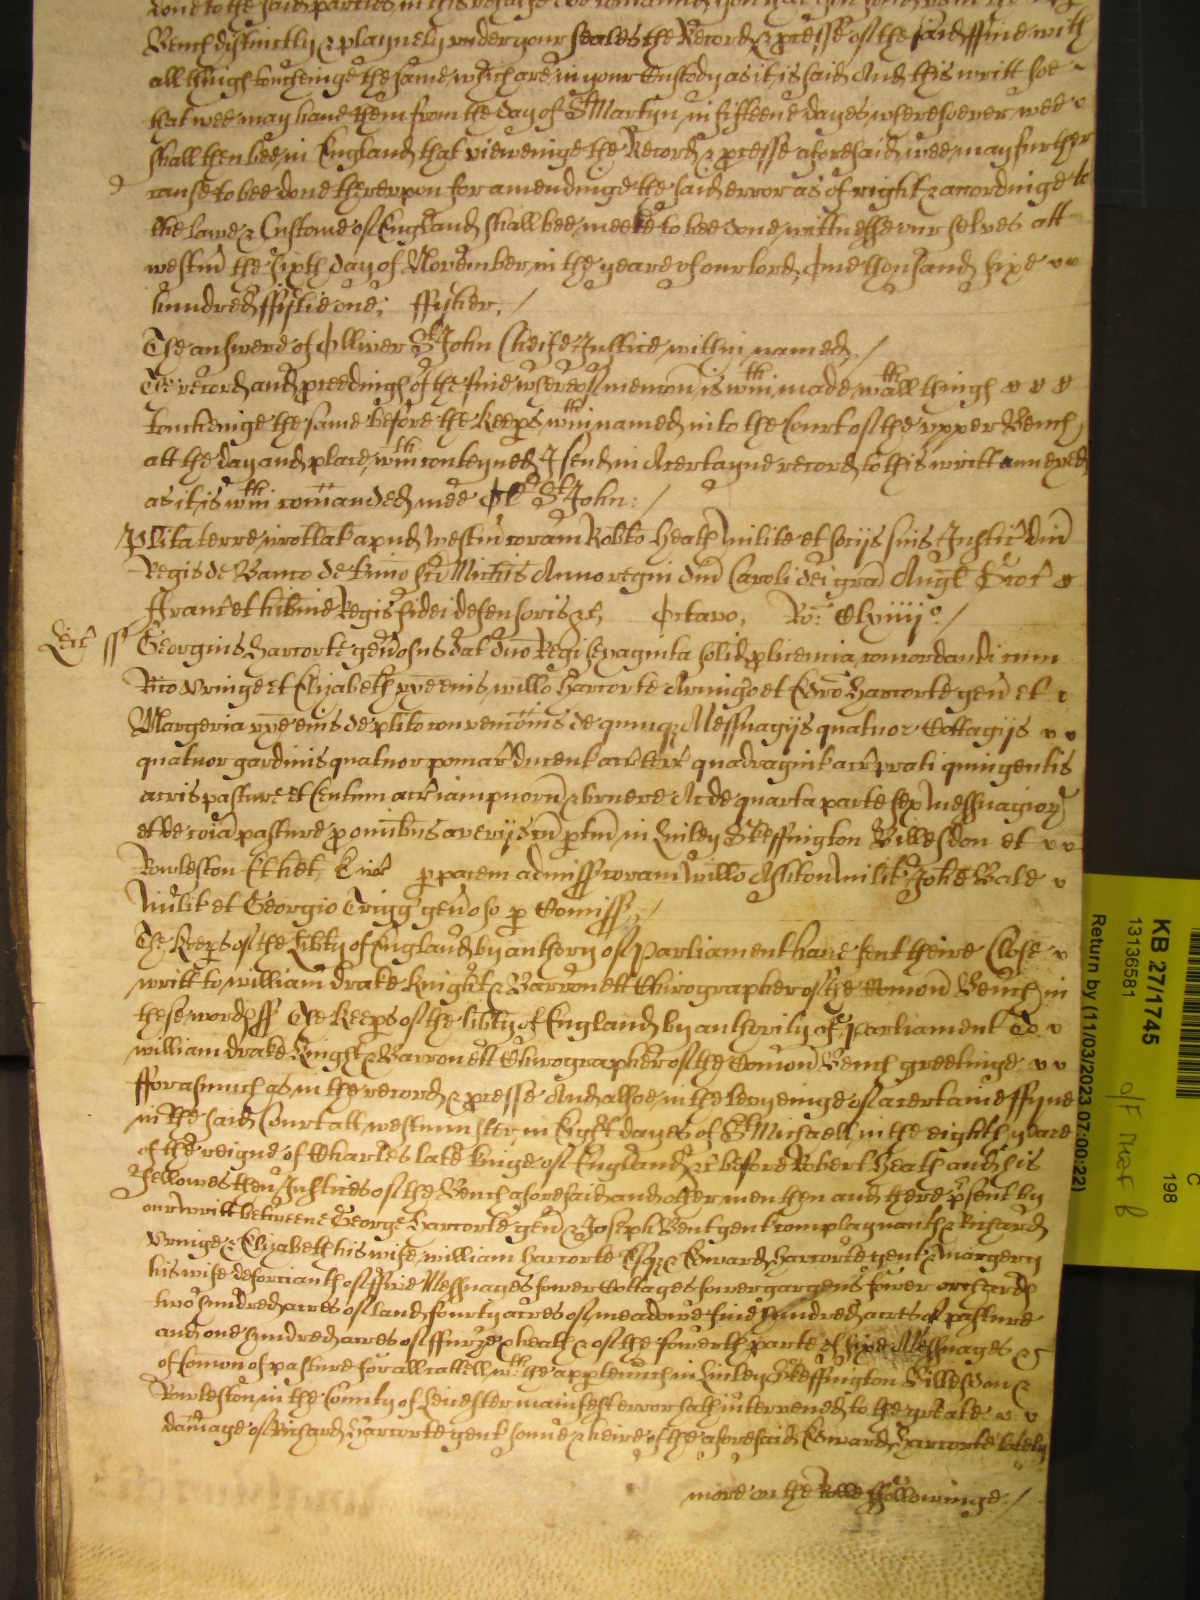 done to the said parties in this behalfe Wee command you that you send us in the upp
Bench distinctly & playnely under your Seales the Record & pcesse of the said ffine with
all things toucheinge the same which are in your Custody as it is said And this writt soe
that wee may have them from the day of St Martyn in fifteene dayes wheresoever wee
shall then bee in England that vieweinge the Record & pcesse aforesaid wee may further
cause to bee done thereupon for amendinge the said error as of right & accordinge to
the lawe & Custome of England shall bee meete to bee done wittnesse our selves att
westm the sixth day of November in the yeare of our lord One thousand sixe
hundred ffiftie one: ffisher, /
The answere of Olliver St John Cheife Justice within named /
The record and pceedings of the fine whereof mencon is wthin made wth all things
touchinge the same before the Keeps wthin named into the Court of the upper Bench
att the day and place wthin conteyned I send in A certayne record to this writt annexed
as it is wthin comanded mee Ol St John: /
Plita terre irrotlat apud westm coram Robto Heath milite et socijs suis Justic dni
Regis de Banco de Tmino sci Michis Anno regni dni Caroli dei gra Angl Scoc
ffranc et hibnie Regis fidei defensoris &c, Octavo, Ro: Clxiiii° /
Leic ss Georgius Harcorte genosus dat dno Regi sexaginta solid p licencia concordandi cum
Rico Vringe et Elizabeth uxe eius, willo Harcorte Armigo et Edro Harcorte gen et
Margeria uxe eius de plito convencois de quinq Messuagijs quatuor Cottagijs
quatuor gardinis quatuor pomar ducent acr terr quadragint acr prati quingentis
acris pasture et Centum acr iampnorum & bruere Ac de quarta parte sex messuagior
et de coia pasture p omibus averijs cu ptin in Linley Skeffington Billesdon et
Rowleston Et het Cir p pacem admiss coram willo Ashton milit Johe Bale
milit et Georgio Trigg genoso p Comiss /
The Keeps of the libty of England by authory of Parliament have sent theire Close
writt to william Drake Knight & Barronett Chirographer of the Comon Bench in
these words ss The Keeps of the libty of England by authority of Parliament To
william Drake Knight & Barronett Chirographer of the Comon Bench greetinge
fforasmuch as in the record & pcesse And alsoe in the levyeinge of a certaine ffyne
in the said Court att westminster in Eight dayes of St Michaell in the eighth yeare
of the reigne of Charles late Kinge of England &c before Robert Heath and his
fellowes then Justices of the Bench aforesaid and other men then and there psent by
our writt betweene George Harcorte gen & Joseph Bent gent complaynants & Richard
Vringe & Elizabeth his wife william Harcorte Esq & Edward Harcorte gent & Margery
his wife deforciants of ffive Messuages fower Cottages fower gardens fower orchards
two hundred acres of land fourty acres of meadowe five hundred acres of pasture
and one hundred acres of ffurzes & heath & of the fowerth parte of sixe Messuages &
of Comon of pasture for all cattell wth the appertenncs in Linley Skeffington Billesdon &
Rowleston in the County of Leicester manifest error hath intervened to the greate
damage of Richard Harcorte gent sonne & heire of the aforesaid Edward Harcorte lately
more on the Rolle ffollowinge /
KB 27/1745
13136581
Return by (11/03/2023 07:00:22)
C
198